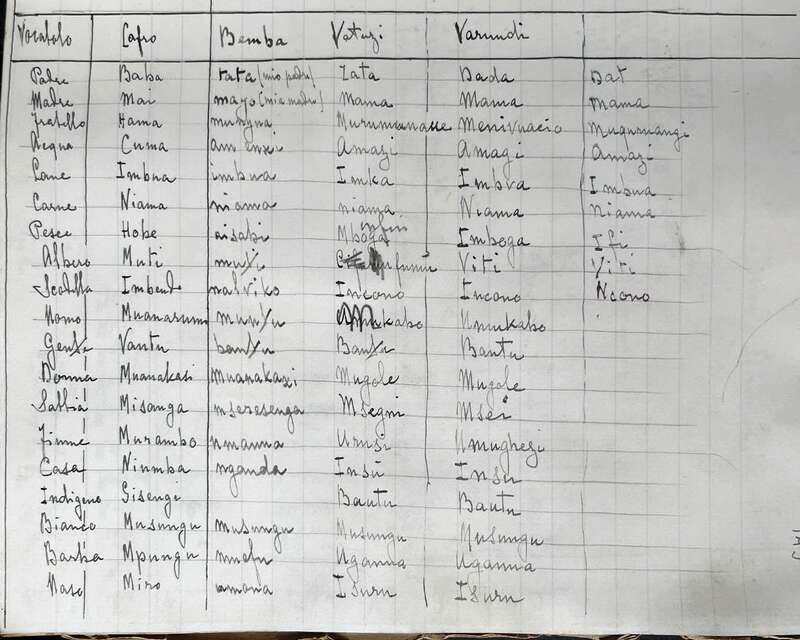 Vocabolo Cafro Bemba Vatuzi Varundi
Padre Baba tata (mio padre) Tata Dada Dat
Madre Mai mayo (mia madre) Mama Mama mama
Fratello Hama Murumunasse Menivuacio
Acqua Cuma amenxi Amazi Amagi Amazi
Cane Imbua imbua Imka Imbva Imbua
Carne Niama niama niama Niama niama
Pesce Hobe isabi Mboga Imboga Ifi
Albero Muti Viti Viti
Scodella nalviko Incono Incono Ncono
Uomo Muanarumi Umukabo
Gente Vantu Bantu
Donna Muanakasi muanakaxi Mugole Mugole
Sabbia Misanga mseresenga Msegni Msei
Fiume Murambo Urusi Umughezi
Casa Niumba nganda Insú Insu
Indigeno Sisengi Bantu Bantu
Bianco Musungu musungu Musungu Musungu
Barba Mpungu Uganna Uganna
Naso Miro amona Isuru Isuru